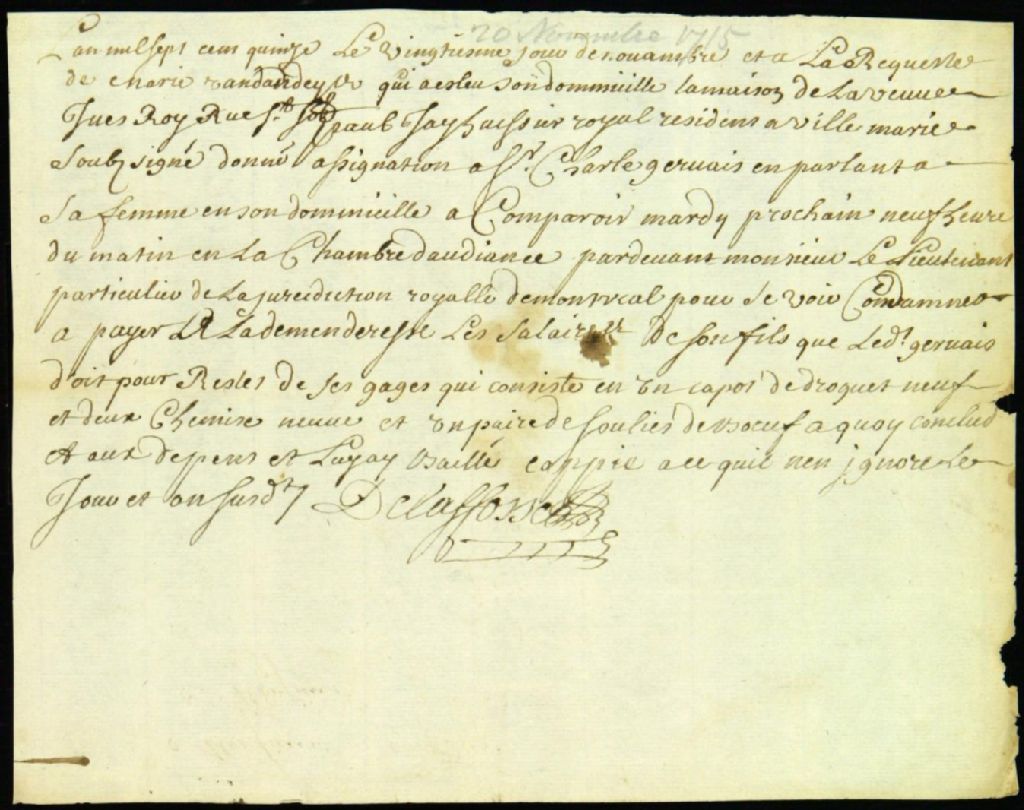 20 Novembre 1715
Lan mil sept cens quinze Le Vingtiesme jour de nouambre et a La Requeste
de Marie vandandeyque qui a esleu son dommicille La maison de La veuue
Yues Roy Rue St paul Jay huissier royal resident a ville marie
Soubsigné donné assignation a Sr. Charle gervais en parlant a
Sa femme en son dommicille a Comparoir mardy prochain neuf heure
du matin en La Chambre daudiance pardeuant monsieur Le Lieutenant
particulier de La jurediction royalle de montreal pour se voir Condamner
a payer A La demenderesse Les Salaires De son fils que Ledt. gervais
doit pour Restes de ses gages qui consiste en un capot de droguet neuf
et deux Chemise neuue et un paire de soulies de boeuf a quoy conclud
et aux depens et Luy ay baillé coppie a ce quil nen jgnore Le
Jour et an susdt
Delafosse